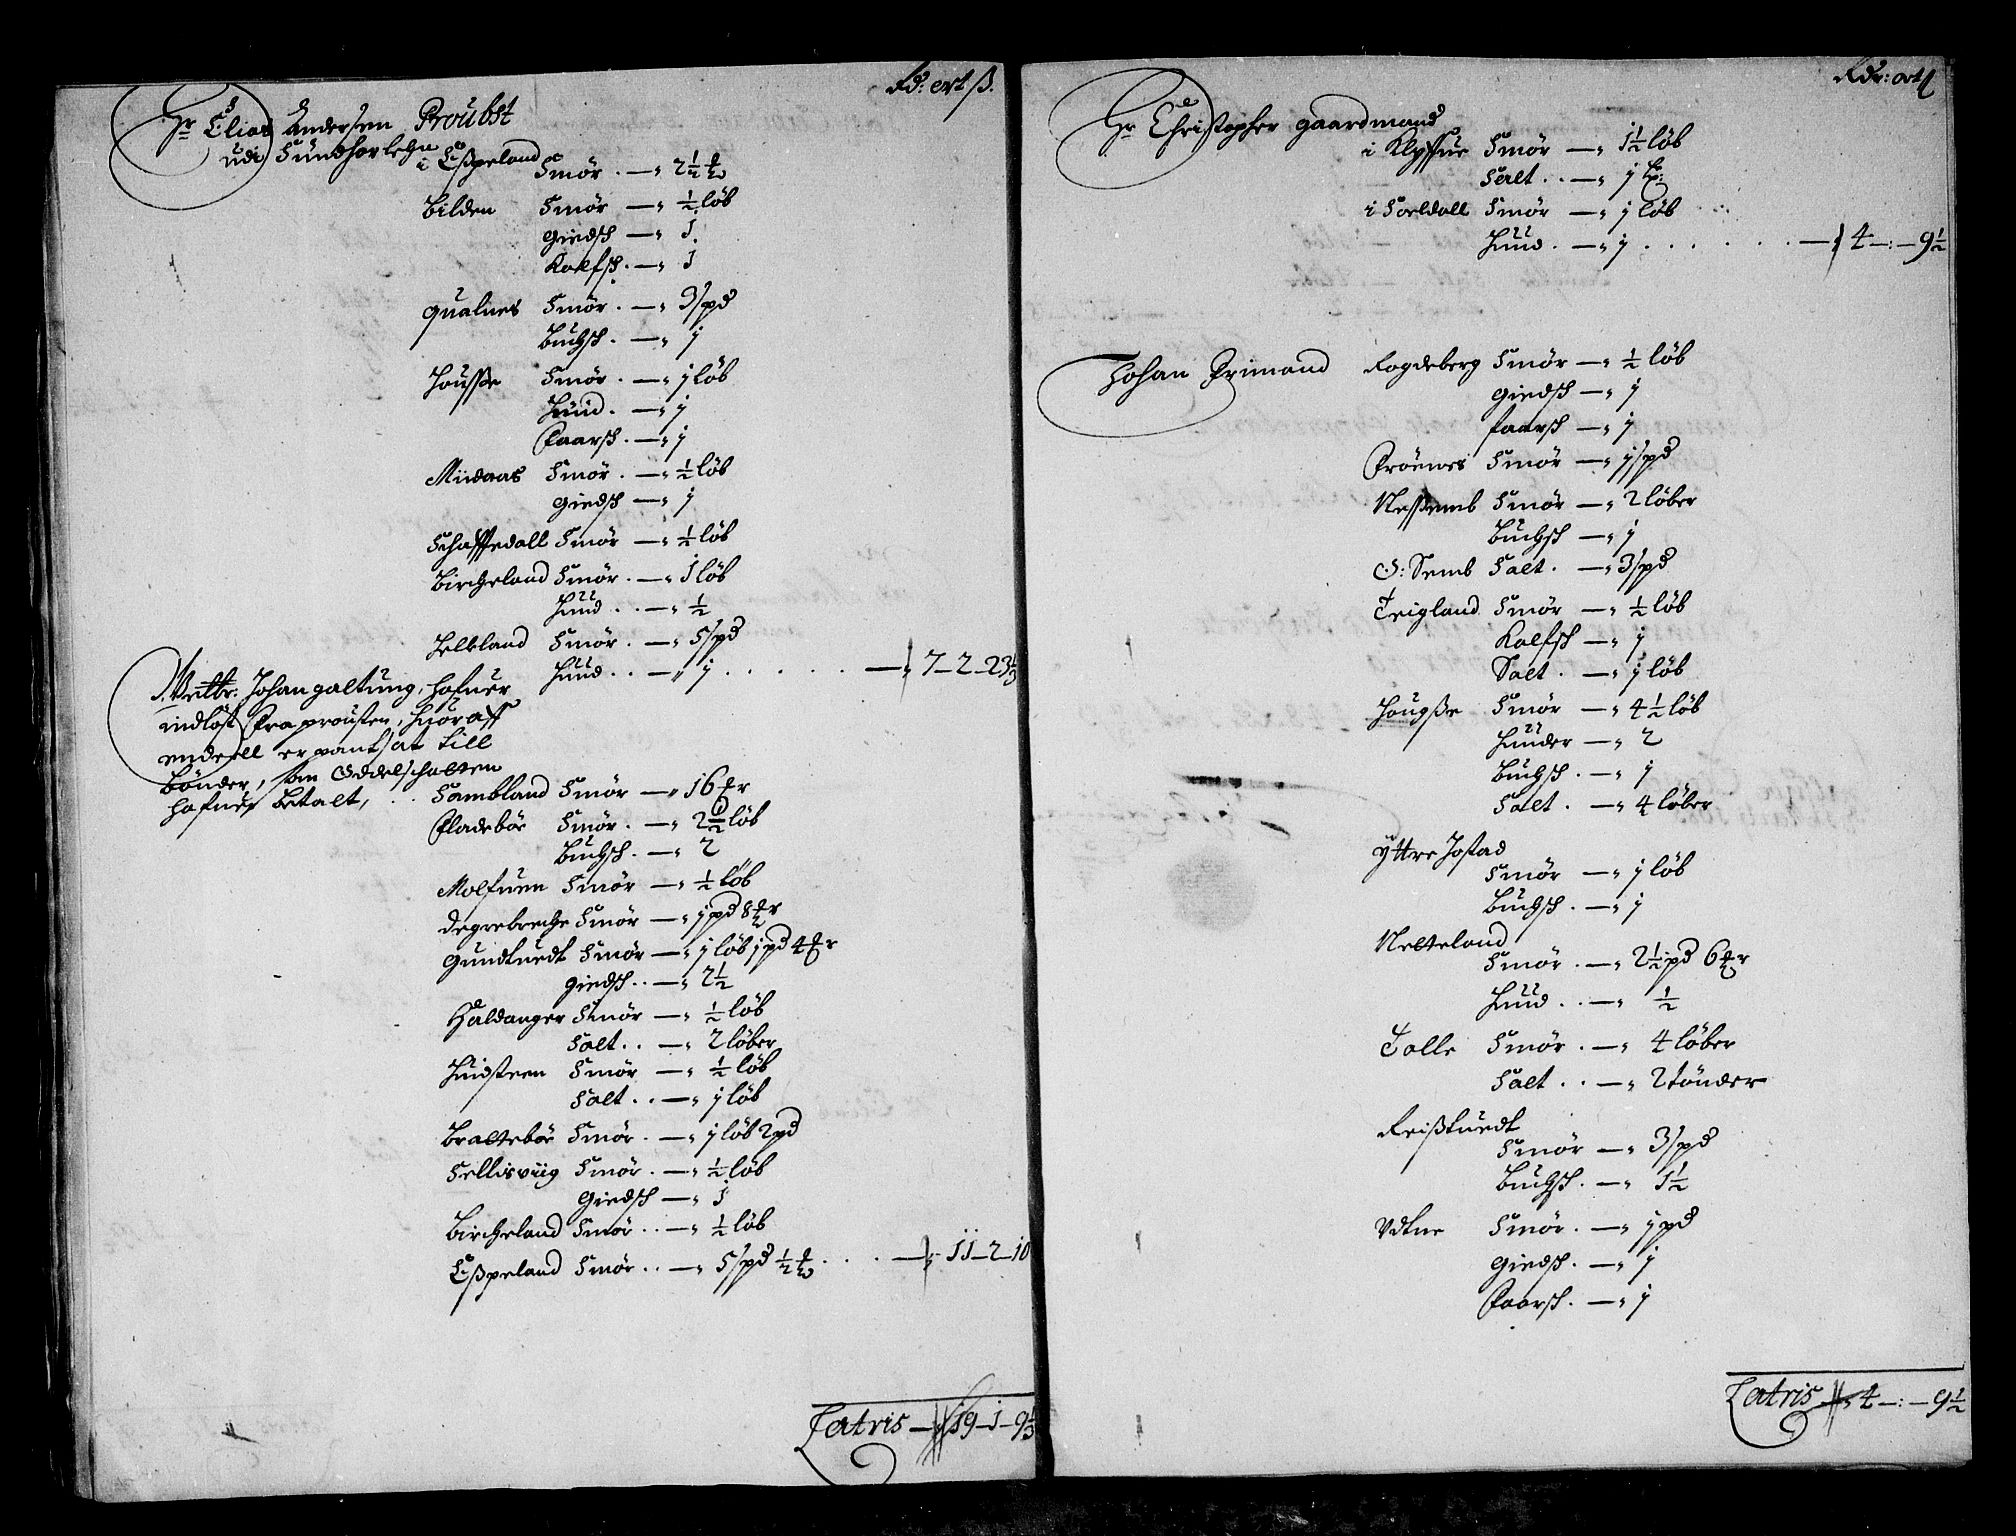 Rd: ort ß.
Hr Elias Andersen Proubst
udi Sundhorlehn
i Eßpeland Smör . — 2½ ℔
Bilden Smör — ½ löb
giedsk — 1
Kalfsk. — 1
qualnes Smör . — 3/pd
Buchsk. — j
Housse Smör . — j löb
Huud. — j
Faarsk. — j
Miidaas Smör . — ½ löb
giedsk — j
Schaffedall Smör — ½ löb
Bircheland Smör . — 1 löb
Huud . . — ½
Helland Smör . — 5/pd
Huud . . — j . . . . . — 7 — 2 — 23⅓
Welb: Johan galtung, hafuer
indlöst fra prousten, huoraff
endeell er pantsat till
bönder, som Oddelschatten
hafuer betalt,
Sambland Smör — 16 ℔r
Fladeböe Smör . — 2½ löb
Buchsk. — 2
Molfuen Smör — ½ löb
degrebreche Smör — j pd 8 ℔r
gundtuedt Smör — j löb j pd 4 ℔r
giedsk . . — 2½
Haldanger Smör — ½ löb
Salt . . — 2 löber
Huidsteen Smör — ½ löb
Salt . . — j löb
Bralteböe Smör . — j löb 2 pd
Sellisviig Smör . — ½ löb
Giedsk — 1
Bircheland Smör . . — ½ löb
Eßpeland Smör . . — 5/pd ½ ℔ . . . — 11 — 2 — 10
Latris — 19 — 1 — 9⅓
Rdr: ort ß
Hr Christopher gaardmand
i Klyffue Smör — 1½ löb
Salt . . — j
i Soeldall Smör — j löb
Huud . — j . . . . . . — 4 — : — 9½
Johan Frimand Rogdeberg Smör — ½ löb
giedsk — j
faarsk — j
Fröenes Smör — j/pd
Neßemb Smör — 2 löber
Buchsk — j
O: Semb Salt . — 3/pd
Teigland Smör — ½ löb
Kalfsk — j
Salt . — j löb
Hougße Smör — 4½ löb
Huuder — 2
Buchsk. — j
Salt . — 4 löber
yttre Jostad
Smör — j löb
Buchsk . — j
Nelteland
Smör . — 2½ pd 6 ℔r
Huud . . — ½
Tolle Smör . — 4 löber
Salt . . — 2 tönder
Reißtuedt
Smör — 3/pd
Buchsk . — 1½
Vdtne Smör . — j pd
giedsk . — j
Faarsk . — j
Latris — 4 — : — 9½